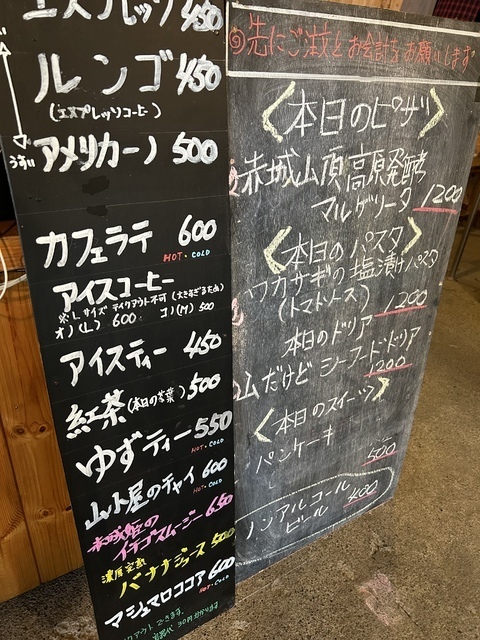 エスプレッソ 450
ルンゴ 450
(エスプレッソコーヒー)
うすい アメリカーノ 500
カフェラテ 600
HOT・COLD
アイスコーヒー
※Lサイズ テイクアウト不可 (大きすぎるため)
オノ(L) 600 コノ(M) 500
アイスティー 450
紅茶 (本日の茶葉) 500
ゆずティー 550
HOT・COLD
山小屋のチャイ 600
HOT・COLD
赤城姫の
イチゴスムージー 650
濃厚完熟
バナナジュース 500
マシュマロココア 600
HOT・COLD
クアウトできます。
先にご注文とお会計をお願いします
〈本日のピザ〉
赤城山頂高原発酵
マルゲリータ 1200
〈本日のパスタ〉
ワカサギの塩漬けパスタ
(トマトソース) 1200
本日のドリア
山だけどシーフードドリア
1200
〈本日のスイーツ〉
パンケーキ
500
ノンアルコール
ビール 400